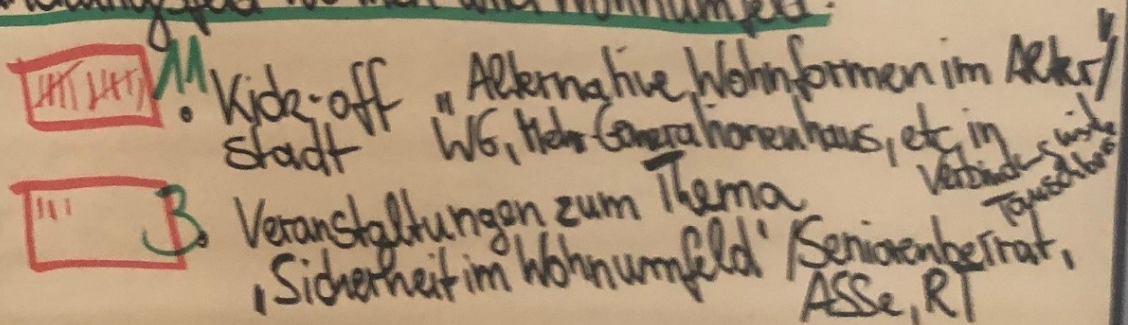 Wohnen und Wohnumfeld:
11 • Kick-off „Alternative Wohnformen im Alter"/
Stadt WG, MehrGenerationenhaus, etc. in
Verbindung mit
3 • Veranstaltungen zum Thema
„Sicherheit im Wohnumfeld" /Seniorenbeirat,
ASSe, RT